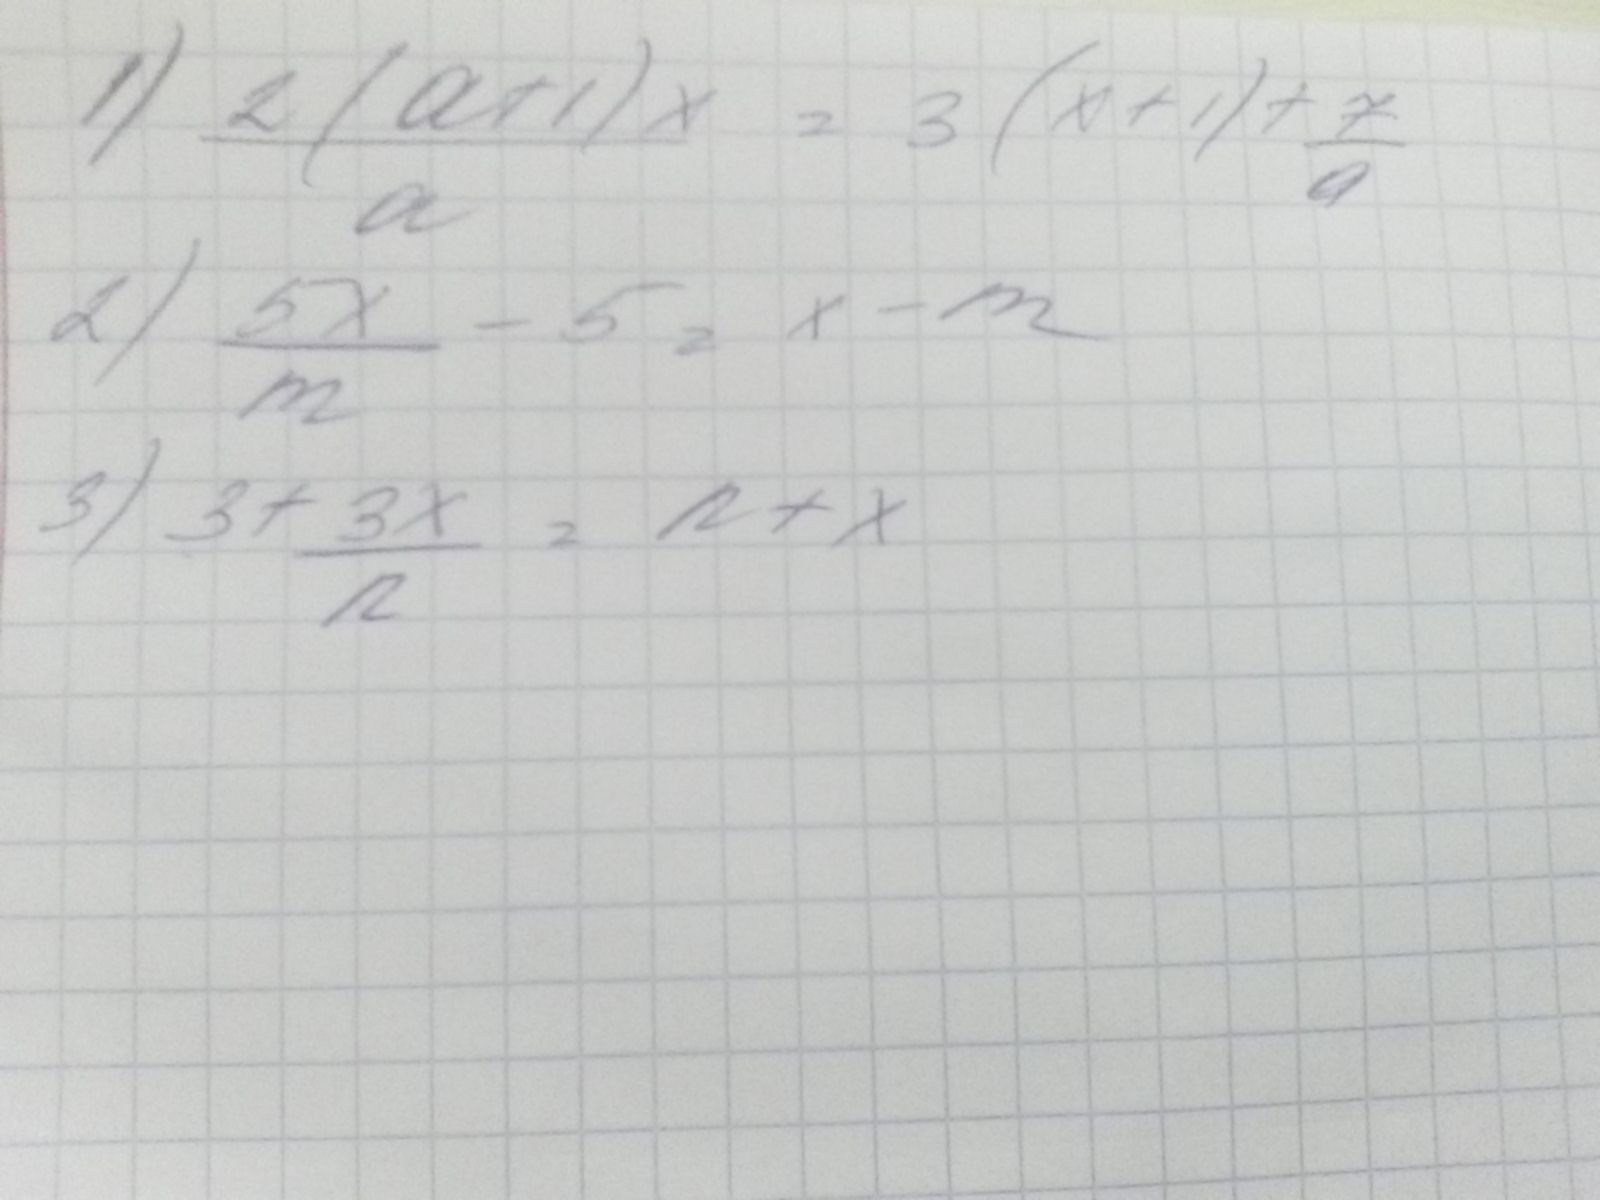 1) 2(a+1)x/a = 3(x+1) + 7/a
2) 5x/m - 5 = x - m
3) 3 + 3x/n = n + x